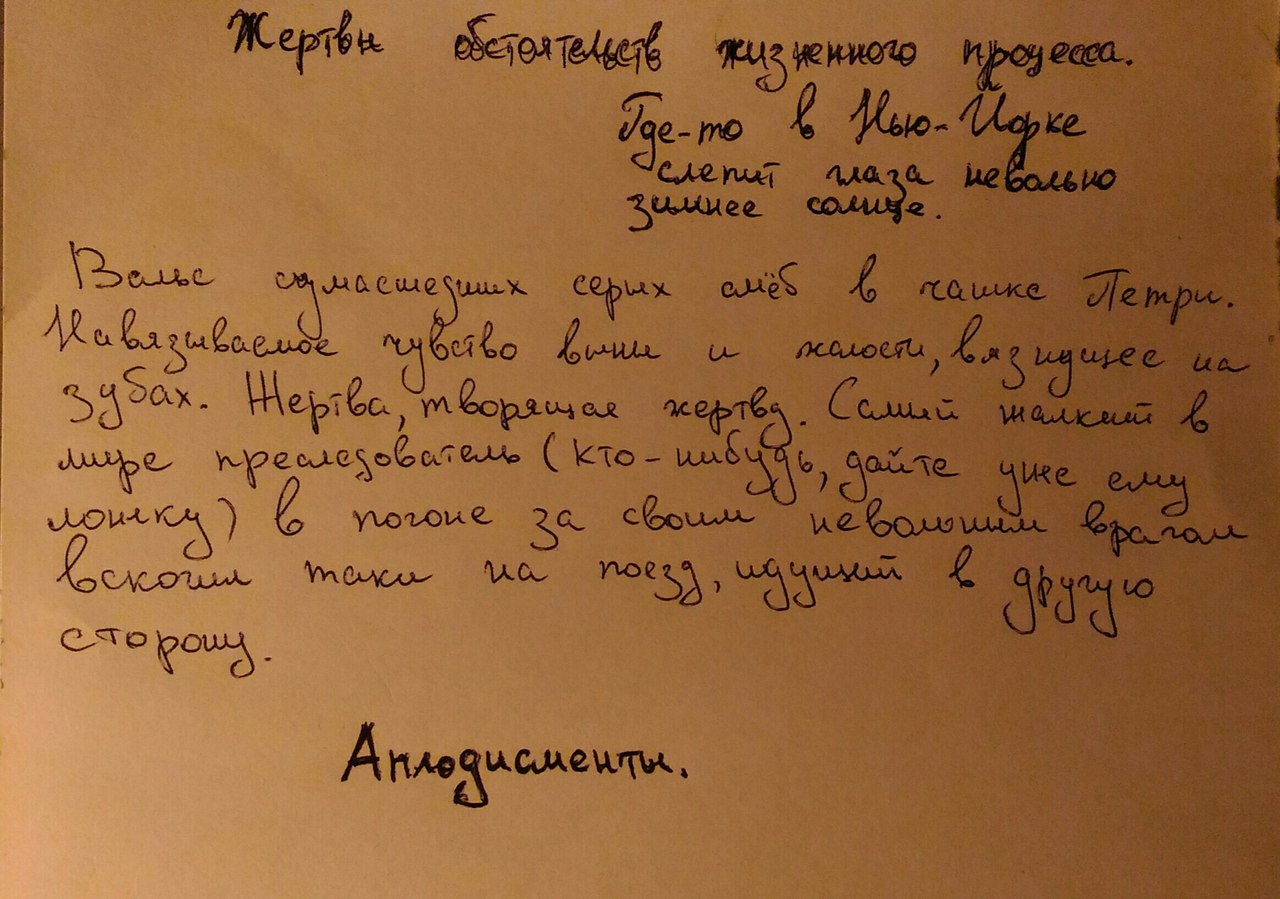 Жертвы обстоятельств жизненного процесса.
Где-то в Нью-Йорке
слепит глаза невольно
зимнее солнце.
Вальс сумасшедших серых амёб в чашке Петри.
Навязываемое чувство вины и жалости, вязнущее на
зубах. Жертва, творящая жертву. Самый жалкий в
мире преследователь (кто-нибудь, дайте уже ему
ложку) в погоне за своим невольным врагом
вскочил таки на поезд, идущий в другую
сторону.
Аплодисменты.